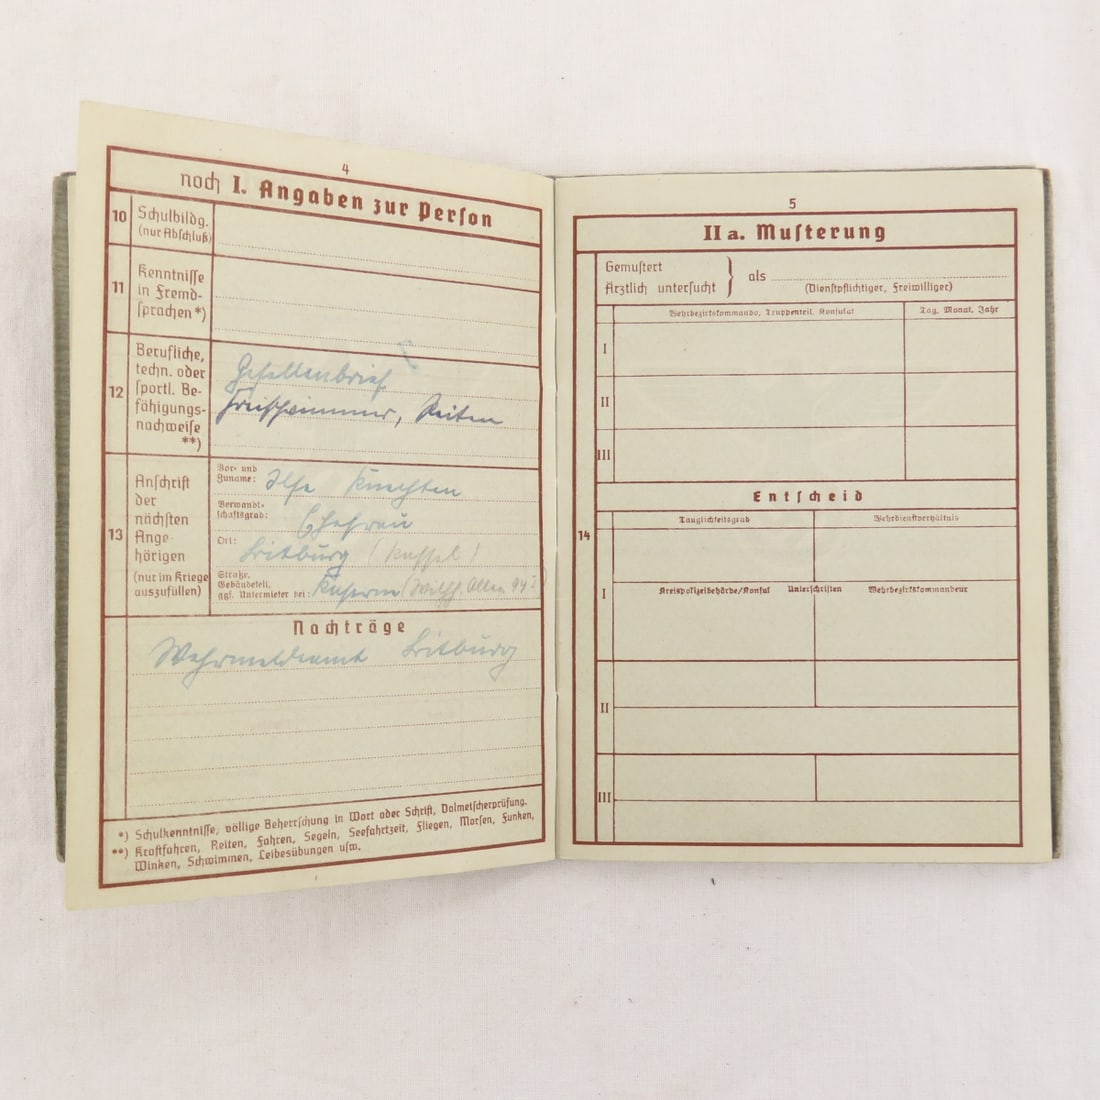 4
noch I. Angaben zur Person
10 Schulbildg.
(nur Abschluß)
11 Kenntnisse
in Fremd-
sprachen *)
12 Berufliche,
techn. oder
sportl. Be-
fähigungs-
nachweise
**)
Gesellenbrief
Freischwimmer, Reiten
13 Anschrift
der
nächsten
Ange-
hörigen
(nur im Kriege
auszufüllen)
Vor- und
Zuname: Ilse
Verwandt-
schaftsgrad: Ehefrau
Ort: Bitburg (Kassel)
Straße,
Gebäudeteil,
ggf. Untermieter bei: Kaserne
Nachträge
Wehrmeldeamt Bitburg
*) Schulkenntnisse; völlige Beherrschung in Wort oder Schrift, Dolmetscherprüfung.
**) Kraftfahren, Reiten, Fahren, Segeln, Seefahrtzeit, Fliegen, Morsen, Funken,
Winken, Schwimmen, Leibesübungen usw.
5
II a. Musterung
Gemustert
Ärztlich untersucht } als
(Dienstpflichtiger, Freiwilliger)
Wehrbezirkskommando, Truppenteil, Konsulat Tag, Monat, Jahr
I
II
III
Entscheid
14
Tauglichkeitsgrad Wehrdienstverhältnis
I
Kreispolizeibehörde/Konsul Unterschriften Wehrbezirkskommandeur
II
III